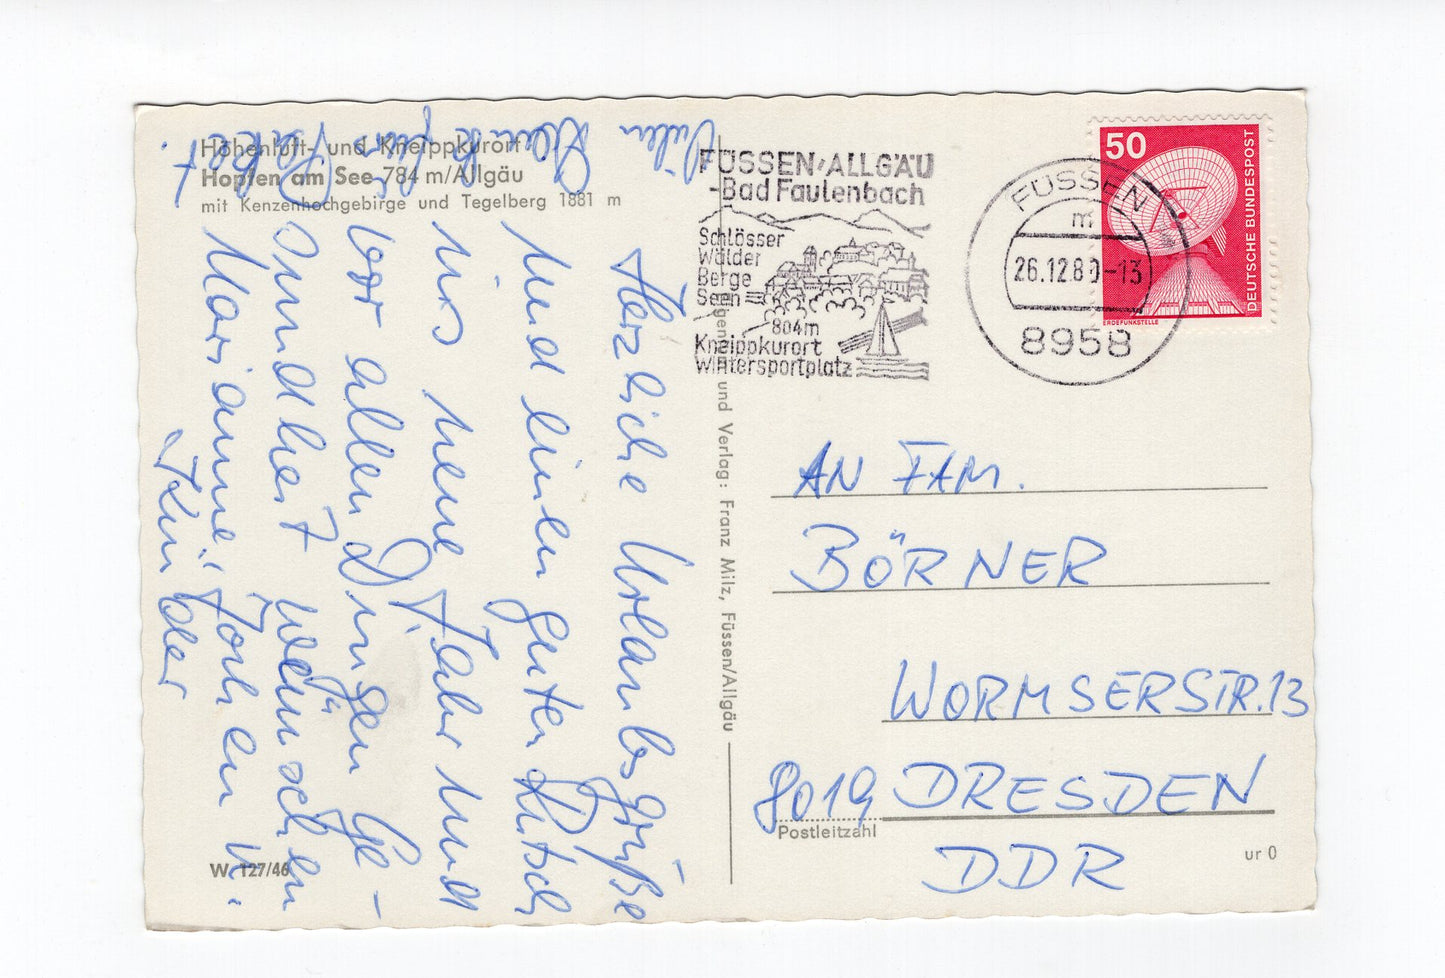 Höhenluft- und Kneippkurort
Hopfen am See 784 m/Allgäu
mit Kenzenhochgebirge und Tegelberg 1881 m
Herzliche Urlaubsgrüße
und einen guten Rutsch
ins neue Jahr und
vor allen Dingen Ge-
sundheit wünschen
Marianne, Jochen u.
Kinder
Vielen Dank für
Paket
W. 127/46
und Verlag: Franz Milz, Füssen/Allgäu
FÜSSEN/ALLGÄU
-Bad Faulenbach
Schlösser
Wälder
Berge
Seen
804m
Kneippkurort
Wintersportplatz
FÜSSEN
m
26.12.80-13
8958
50
DEUTSCHE BUNDESPOST
ERDEFUNKSTELLE
AN FAM.
BÖRNER
WORMSERSTR. 13
8019 DRESDEN
Postleitzahl
DDR
ur 0